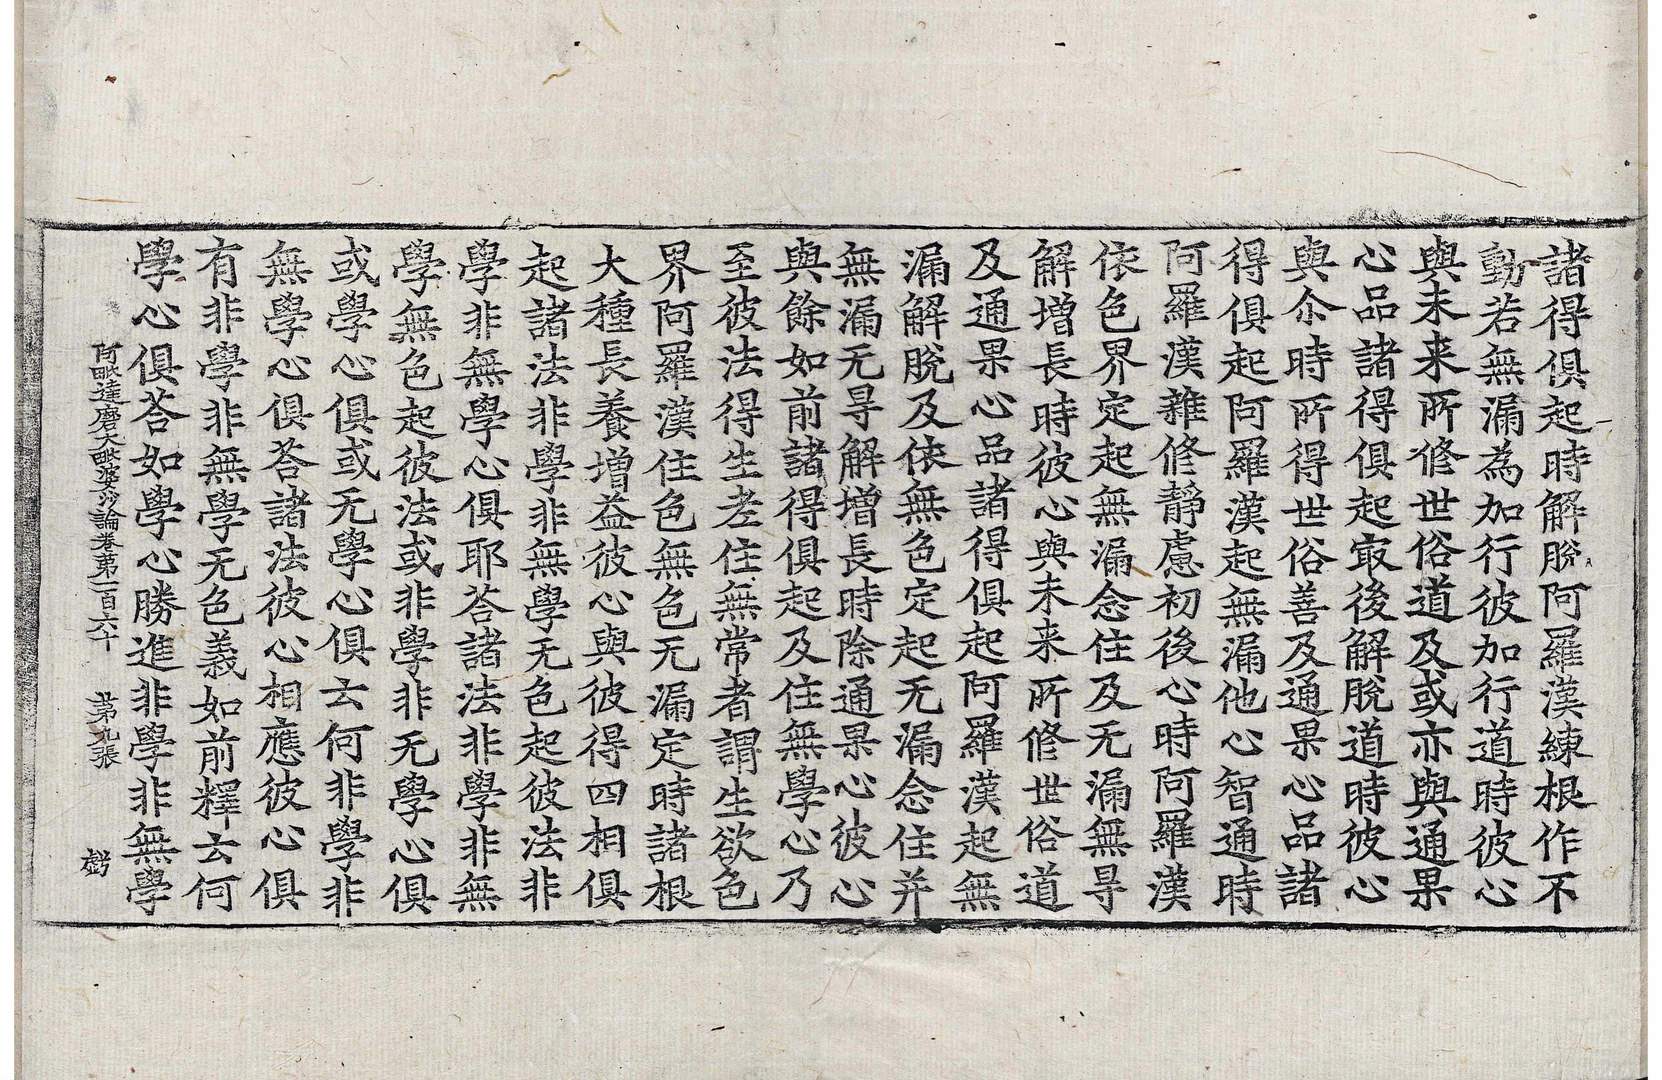 諸得俱起時解脫阿羅漢練根作不
動若無漏為加行彼加行道時彼心
與未来所修世俗道及或亦與通果
心品諸得俱起㝡後解脫道時彼心
與尒時所得世俗善及通果心品諸
得俱起阿羅漢起無漏他心智通時
阿羅漢雜修靜慮初後心時阿羅漢
依色界定起無漏念住及无漏無㝵
解增長時彼心與未来所修世俗道
及通果心品諸得俱起阿羅漢起無
漏解脫及依無色定起无漏念住并
無漏无㝵解增長時除通果心彼心
與餘如前諸得俱起及住無學心乃
至彼法得生老住無常者謂生欲色
界阿羅漢住色無色无漏定時諸根
大種長養增益彼心與彼得四相俱
起諸法非學非無學无色起彼法非
學非無學心俱耶荅諸法非學非無
學無色起彼法或非學非无學心俱
或學心俱或无學心俱云何非學非
無學心俱荅諸法彼心相應彼心俱
有非學非無學无色義如前釋云何
學心俱荅如學心勝進非學非無學
阿毗達磨大毗婆沙論卷第一百六十　第九張